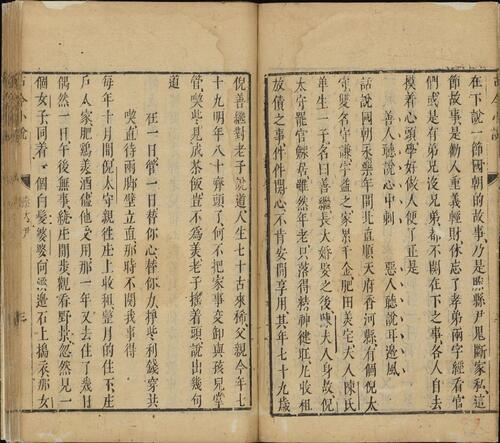 在下說一節國朝的故事乃是滕縣尹鬼斷家私這
節故事是勸人重義輕財休忘了孝弟兩字經看官
們或是有弟兄沒弟兄都不關在下之事各人自去
摸着心頭學好做人便了正是
善人聽說心中刺 惡人聽說耳邊風
話說國朝永樂年間北直順天府香河縣有個倪太
守雙名守謙字益之家累千金肥田美宅夫人陳氏
單生一子名曰善繼長大婚娶之後陳夫人身故倪
太守罷官鰥居雖然年老只落得精神健旺凡收租
放債之事件件關心不肯安閒享用其年七十九歲
倪善繼對老子說道人生七十古來稀父親今年七
十九明年八十齊頭了何不把家事交卸與孩兒掌
管喫些見成茶飯豈不為美老子搖着頭說出幾句
道
在一日管一日替你心替你力掙些利錢穿共
喫直待兩脚壁立直那時不關我事得
每年十月間倪太守親往庄上收租整月的住下庄
戶人家肥鷄美酒儘他受用那一年又去住了幾日
偶然一日午後無事繞庄閒步觀看野景忽然見一
個女子同着一個白髮婆婆向溪邊石上搗衣那女
古今小說